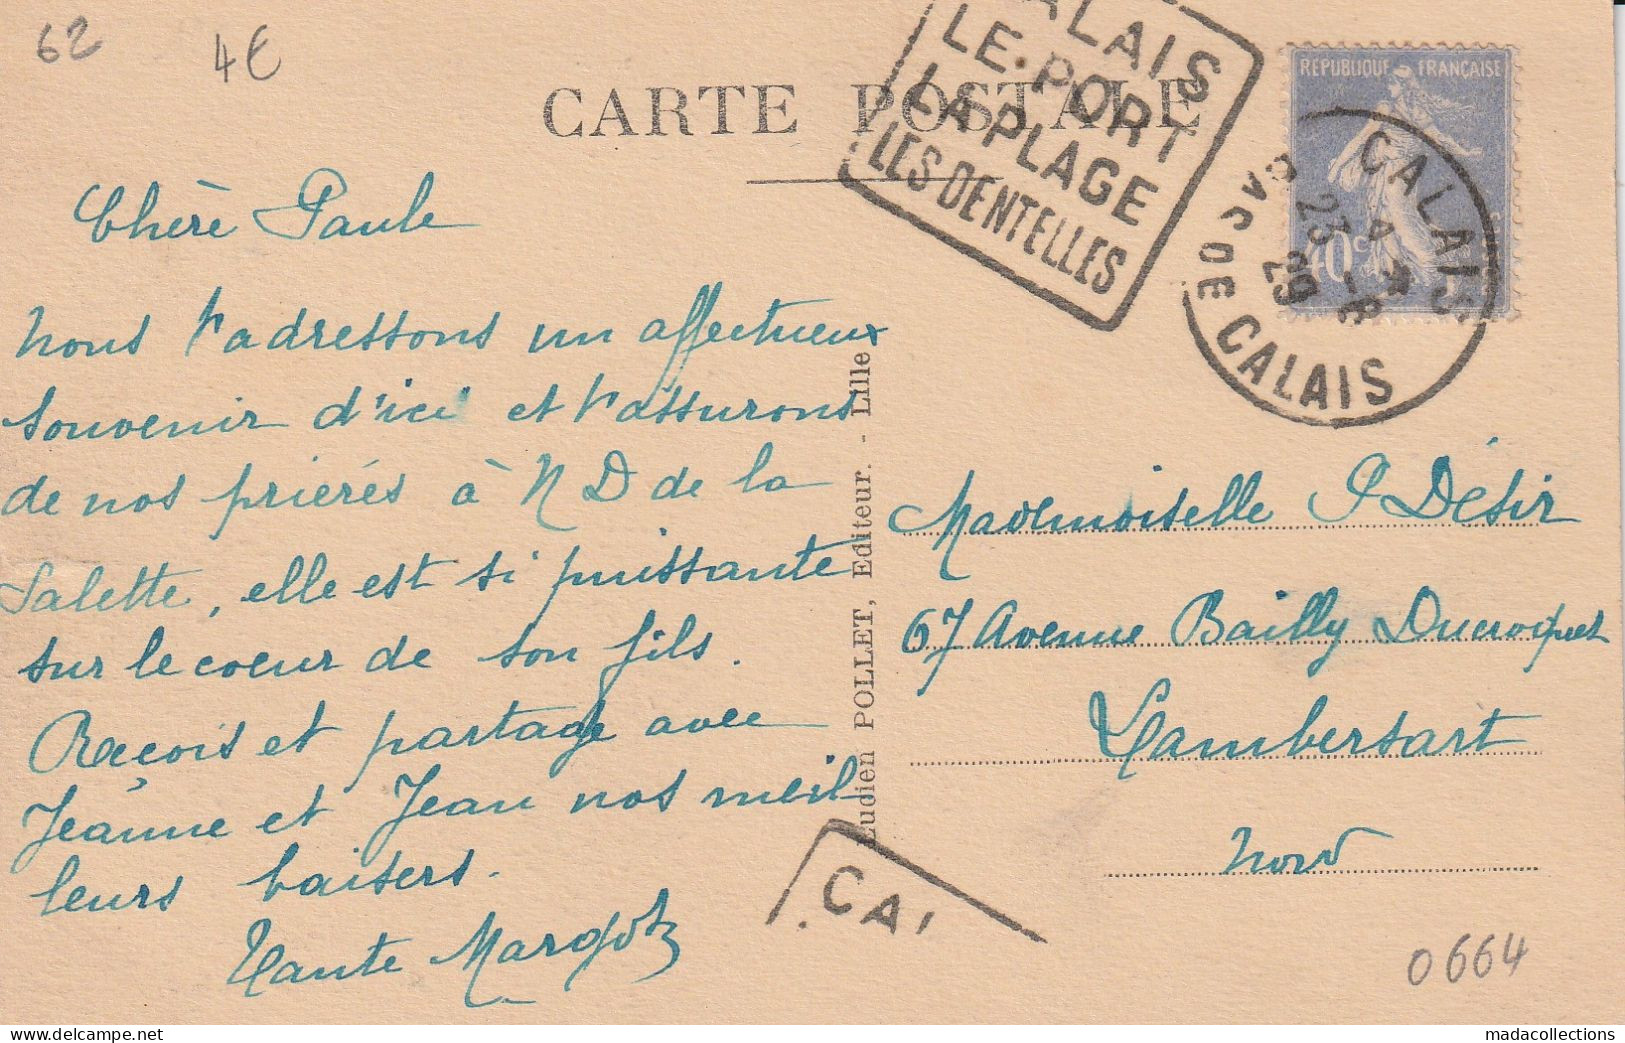 62
4€
CARTE POSTALE
CALAIS
LE PORT
LA PLAGE
LES DENTELLES
REPUBLIQUE FRANÇAISE
40c
CALAIS
PAS DE CALAIS
23 -8
29
Chère Paule
Nous t'adressons un affectueux
souvenir d'ici et t'assurons
de nos prières à N D de la
Salette, elle est si puissante
sur le coeur de son fils.
Reçois et partage avec
Jeanne et Jean nos meil
leurs baisers.
Tante Margot
Lucien POLLET, Editeur. - Lille
Mademoiselle P Désir
67 Avenue Bailly Ducroquet
Lambersart
Nord
CAL
0664
madacollections